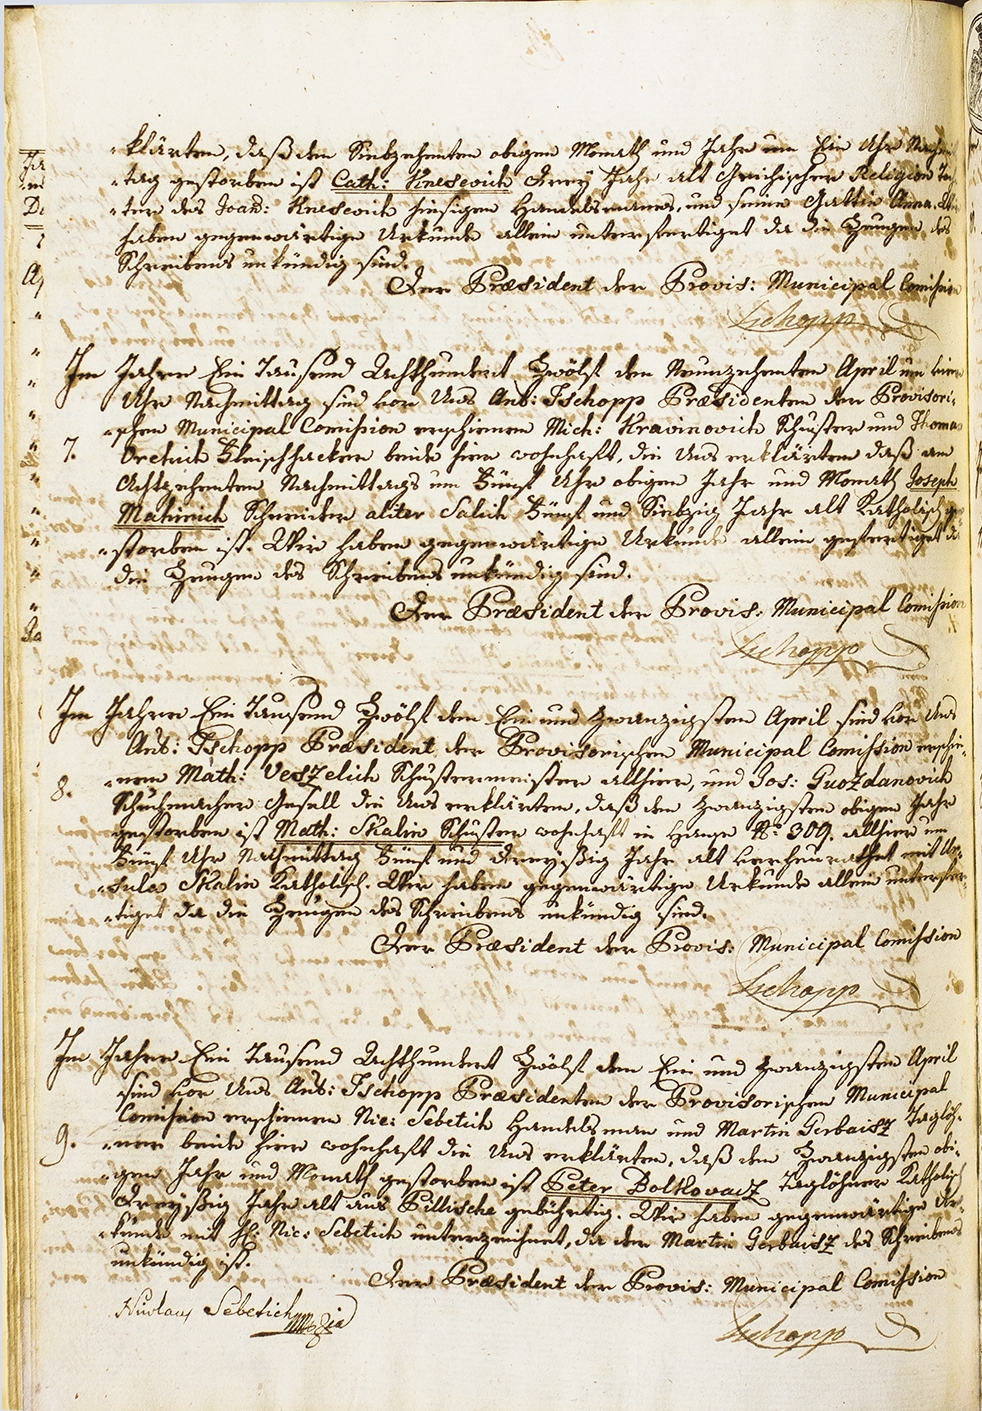 -klärten, daß den Siebzehenten obigen Monath und Jahr um Ein Uhr Nachmi-
-tag gestorben ist Cath: Knesevich Drey Jahr alt Grichischer Religion Toch-
-ter des Joan: Knesevich hiesigen Handelsmanns, und seiner Gattin Anna. Wir
haben gegenwärtige Urkunde allein unterfertiget da die Zeugen des
Schreibens unkündig sind.
Der Præsident der Provis: Municipal Comission
Tschopp
Im Jahre Ein Tausend Achthundert Zwölf den Neunzehenten April um vier
Uhr Nachmittag sind vor Uns Ant: Tschopp Præsidenten der Provisori-
-schen Municipal Comission erschienen Mich: Kravinovich Schuster und Thomas
7. Orehich Fleischhacker beide hier wohnhaft, die Uns erklärten daß am
Achtzehenten Nachmittags um Fünf Uhr obigen Jahr und Monath Joseph
Mahinich Schneider aliter Salich Fünf und Siebzig Jahr alt Katholisch ge-
-storben ist. Wir haben gegenwärtige Urkunde allein gefertiget da
die Zeugen des Schreibens unkündig sind.
Der Præsident der Provis: Municipal Comission
Tschopp
Im Jahre Ein Tausend Zwölf den Ein und Zwanzigsten April sind vor Uns
Ant: Tschopp Præsident der Provisorischen Municipal Comission erschie-
8. -nen Math: Veszelich Schustermeister allhier, und Jos: Guozdanovich
Schuhmacher Gesell die Uns erklärten, daß den Zwanzigsten obigen Jahr
gestorben ist Math: Skalin Schuster wohnhaft in Hause No 309. allhier um
Fünf Uhr Nachmittag Fünf und Dreyßig Jahr alt verheurathet mit Ur-
-sula Skalin Katholisch. Wir haben gegenwärtige Urkunde allein unterfer-
-tiget da die Zeugen des Schreibens unkündig sind.
Der Præsident der Provis: Municipal Comission
Tschopp
Im Jahre Ein Tausend Achthundert Zwölf den Ein und Zwanzigsten April
sind vor Uns Ant: Tschopp Præsidenten der Provisorischen Municipal
Comission erschienen Nic: Sebetich Handelsman und Martin Gerbaisz Taglöh-
9. -ner beide hier wohnhaft die Uns erklärten, daß den Zwanzigsten obi-
-gen Jahr und Monath gestorben ist Peter Boltkovacz Taglöhner Katholisch
Dreyßig Jahr alt aus Pillische gebührtig. Wir haben gegenwärtige Ur-
-kunde mit H: Nic: Sebetich unterzeichnet, da der Martin Gerbaisz des Schreibens
unkündig ist.
Der Præsident der Provis: Municipal Comission
Nicolaus Sebetich
Tschopp